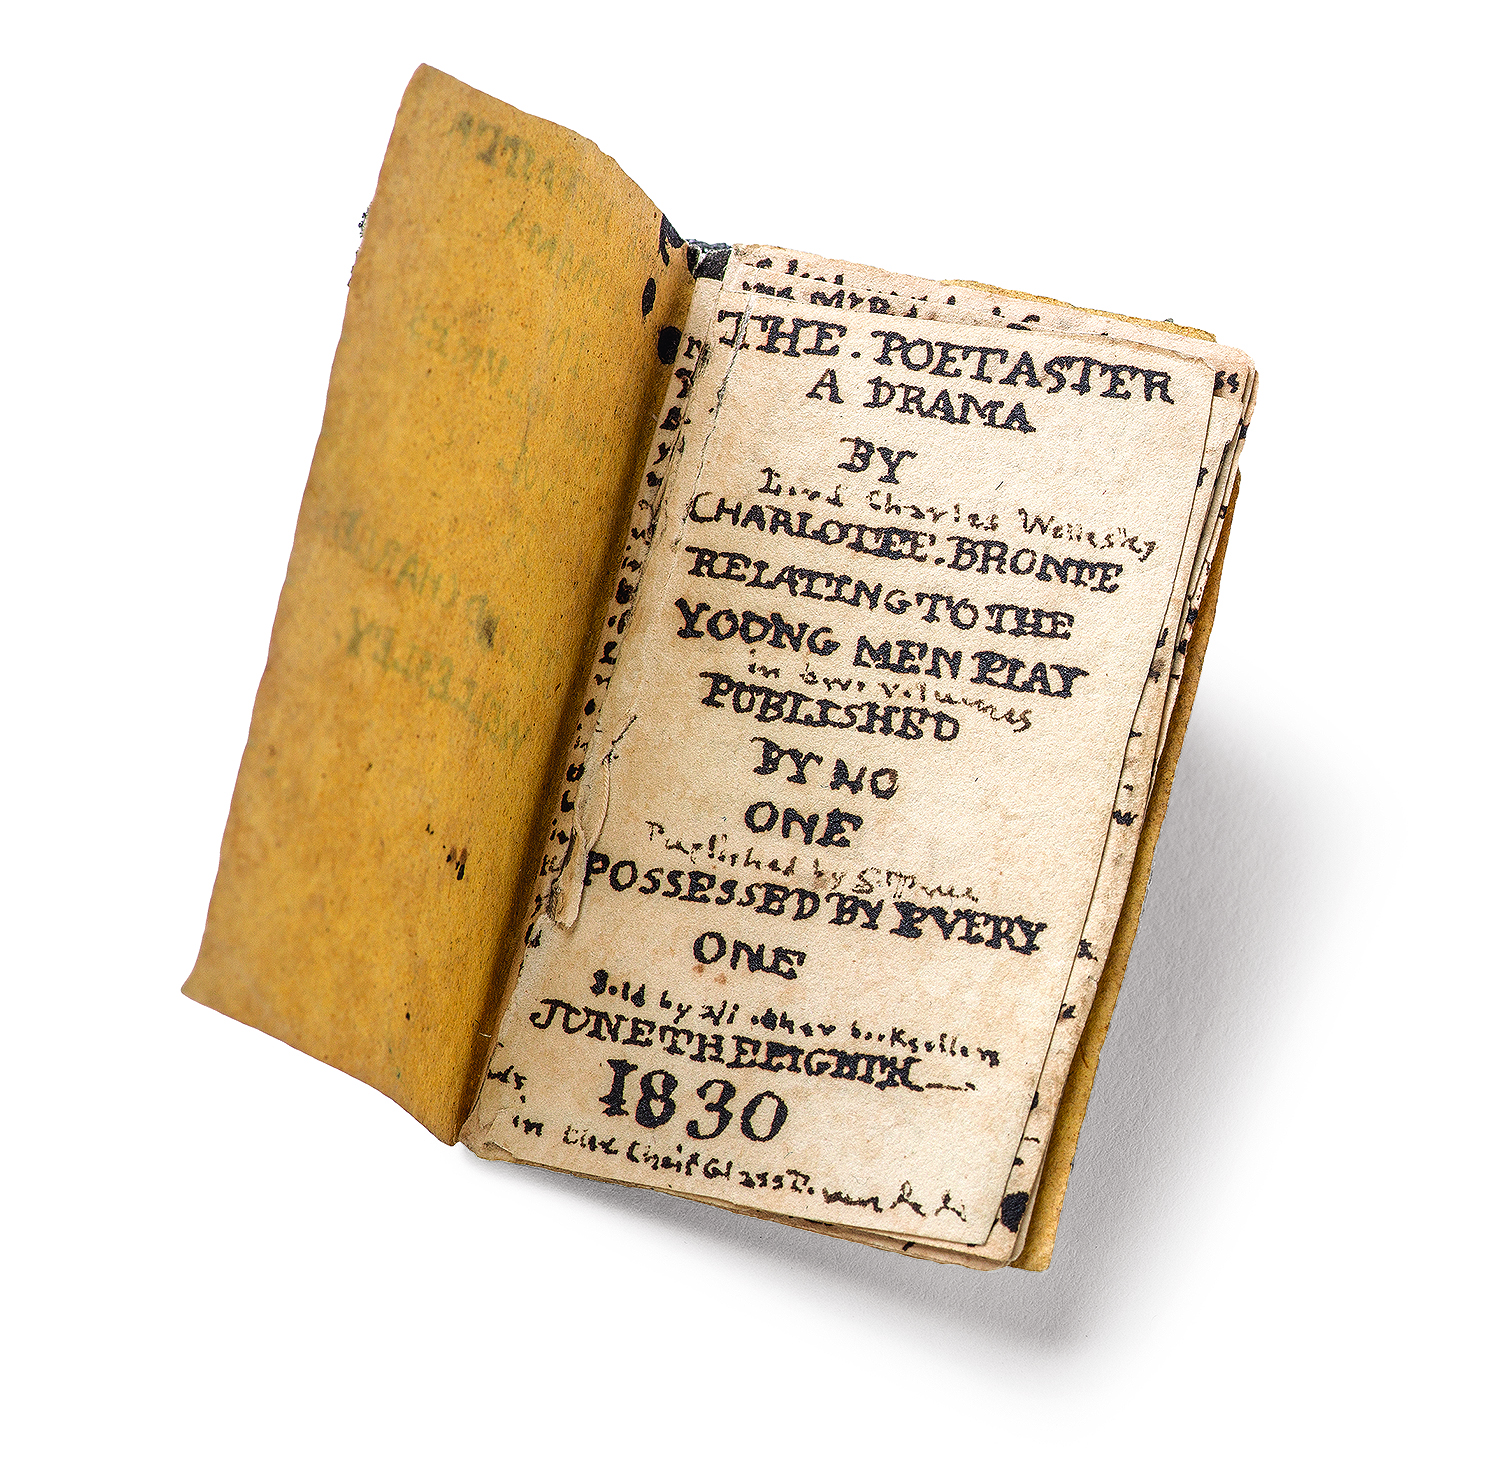 THE . POETASTER
A DRAMA
BY
Lord Charles Wellesley
CHARLOTTE . BRONTE
RELATING TO THE
YOUNG MEN PLAY
in two volumes
PUBLISHED
BY NO
ONE
Published by
POSSESSED BY EVERY
ONE
Sold by all other booksellers
JUNE THE EIGHTH
1830
in the Cheif Glass Town &c &c